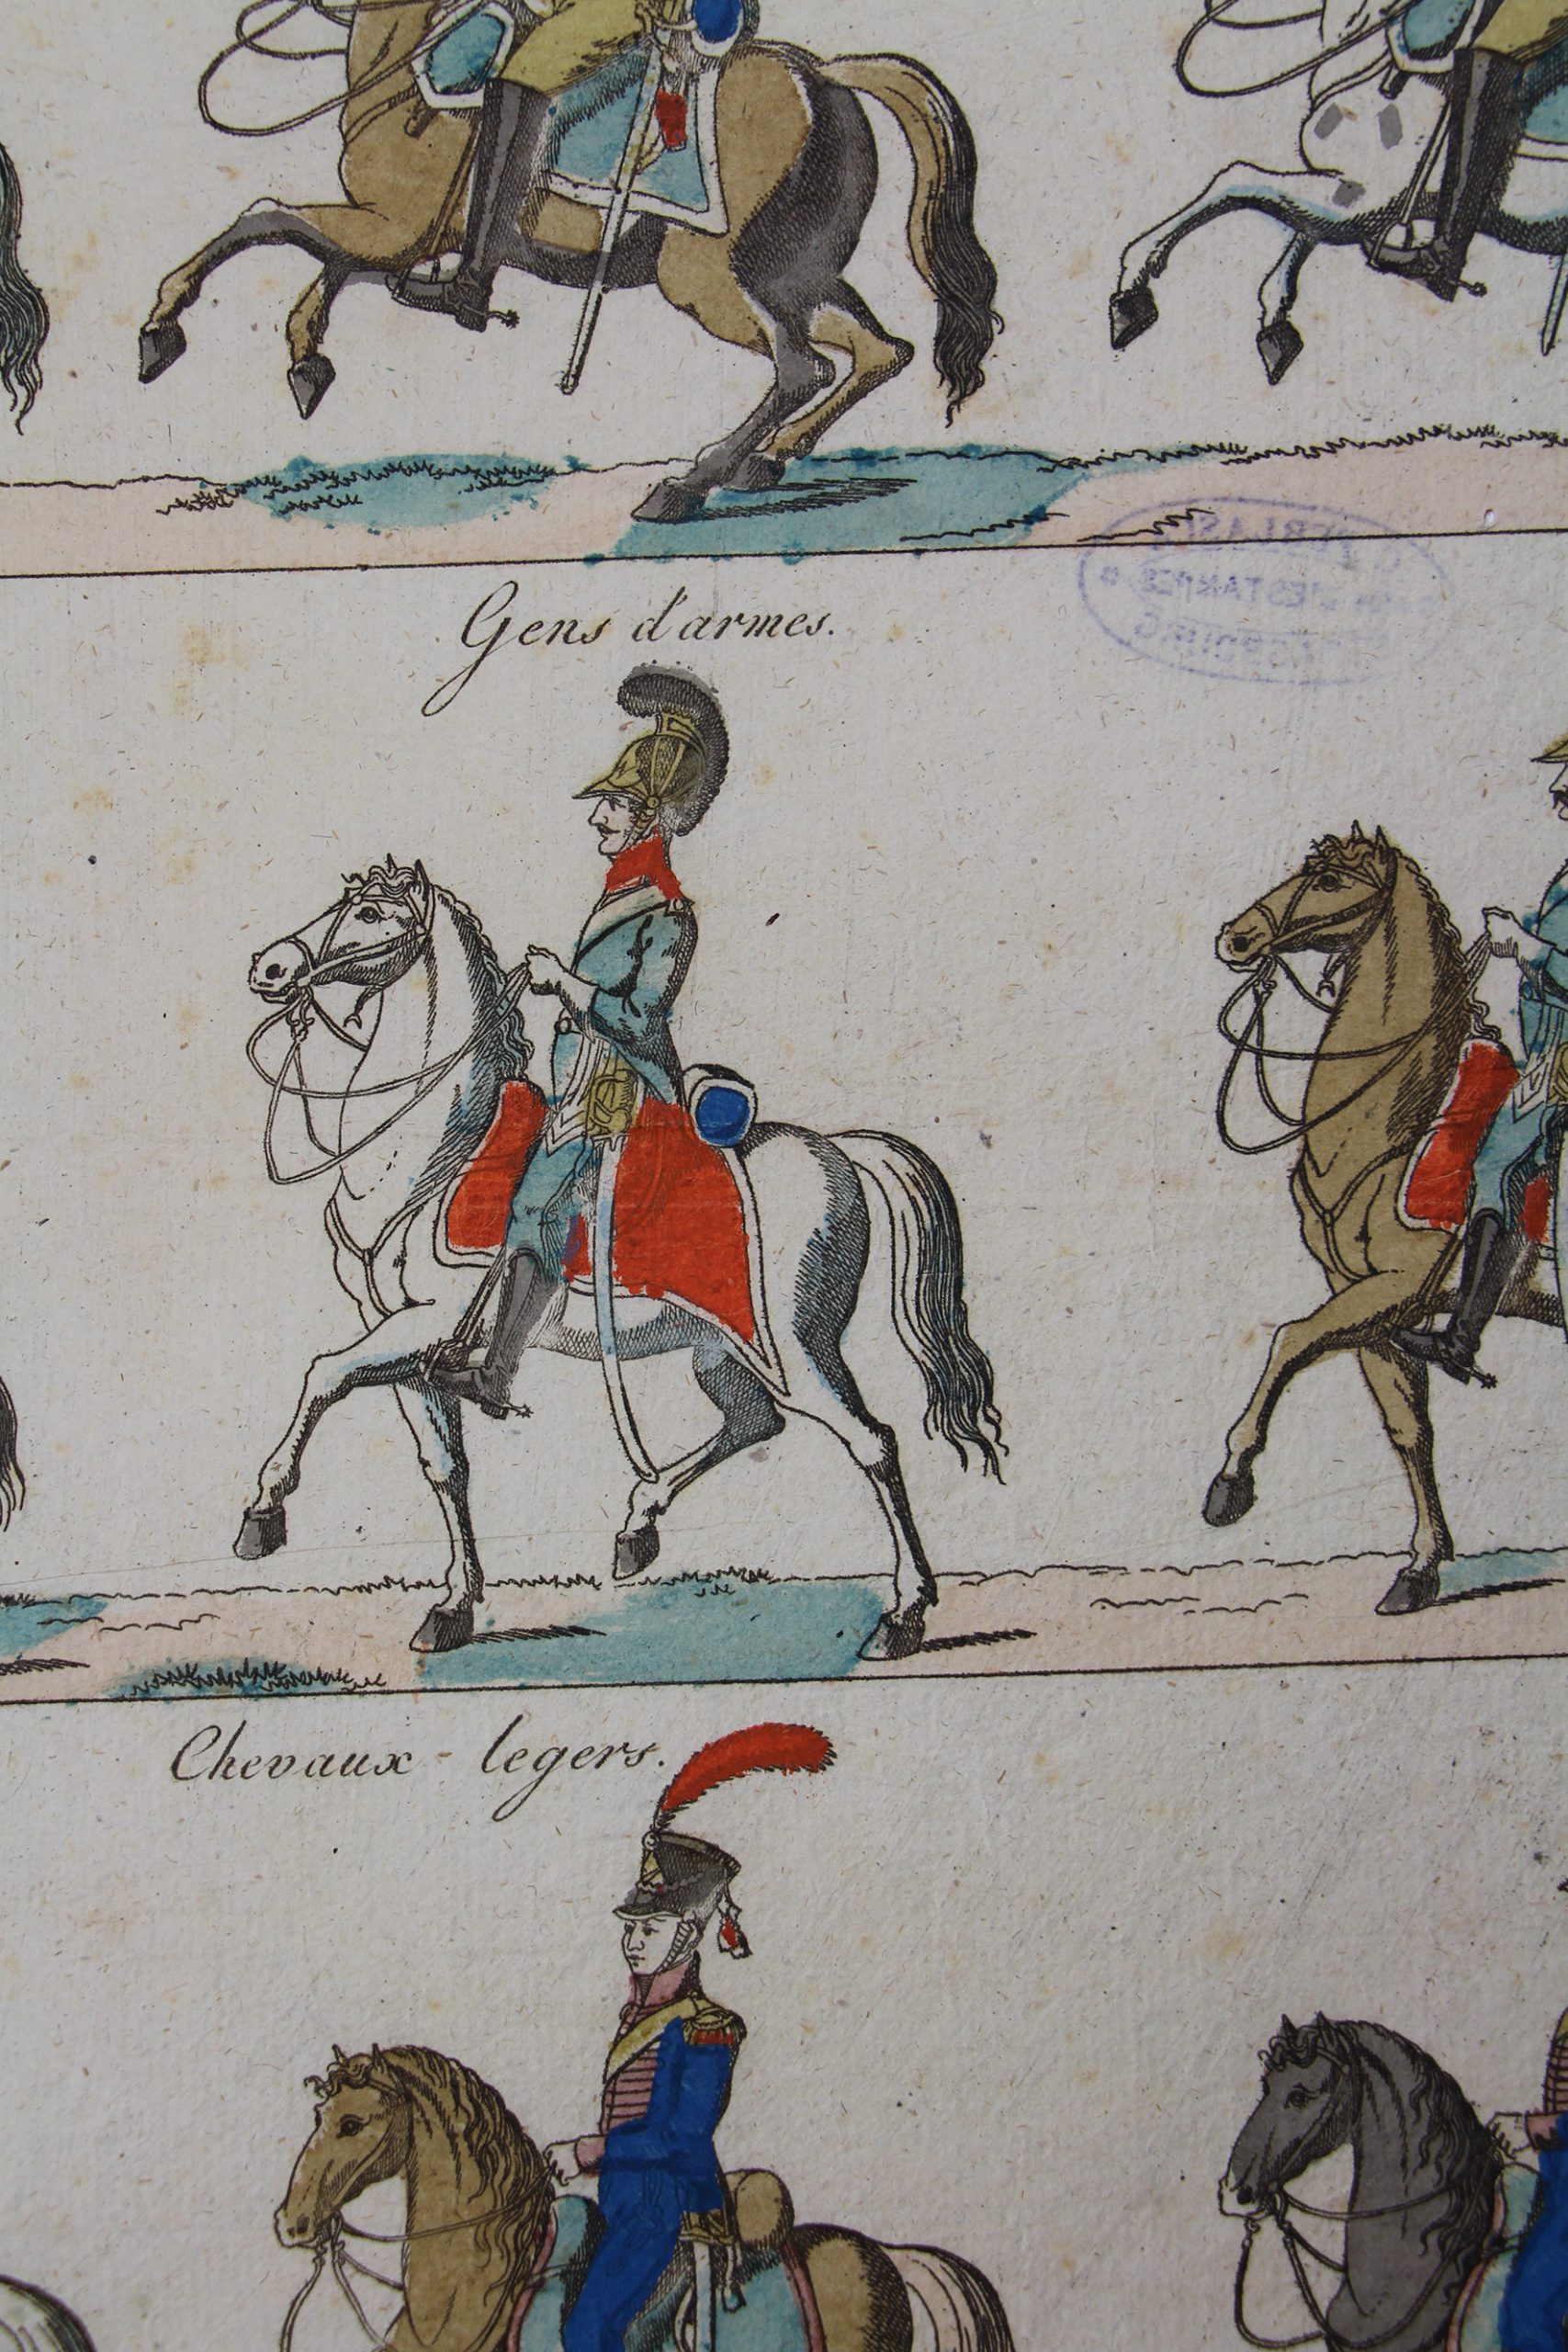 Gens d'armes.
Chevaux - legers.